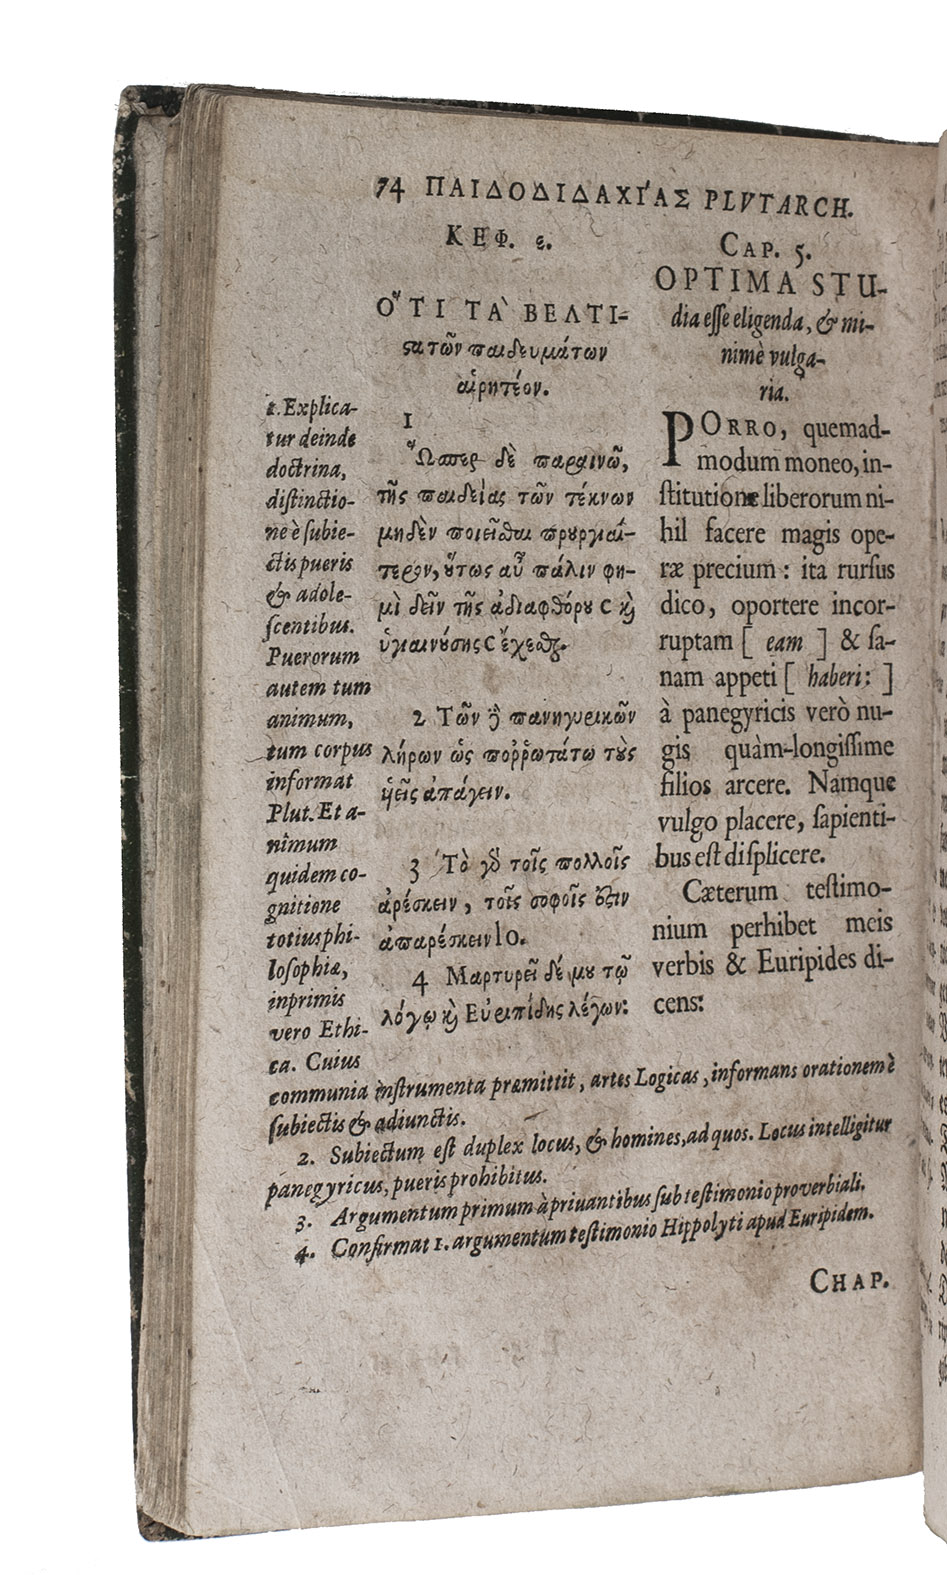 74 ΠΑΙΔΟΔΙΔΑΧΊΑΣ PLVTARCH.
ΚΕΦ. ε.
Ο῞ΤΙ ΤᾺ ΒΕΛΤΙ-
ϛα τῶν παιδευμάτων
αἱρητέον.
1
Ὥσπερ δὲ παραινῶ,
τῆς παιδείας τῶν τέκνων
μηδὲν ποιεῖσθαι προυργιαί-
τερον, ὅτως αὖ πάλιν φη-
μὶ δεῖν τῆς ἀδιαφθόρου C κὶ
ὑγιαινούσης C ἔχεσθαι.
2 Τῶν δὲ πανηγυρικῶν
λήρων ὡς ποῤῥωτάτω τοὺς
ὑεῖς ἀπάγειν.
3 Τὸ γὸ τοῖς πολλοῖς
ἀρέσκειν, τοῖς σοφοῖς ἐϛιν
ἀπαρέσκειν 10.
4 Μαρτυρεῖ δέ μου τῷ
λόγῳ κὶ Εὐριπίδης λέγων:
CAP. 5.
OPTIMA STU-
dia esse eligenda, & mi-
nimè vulga-
ria.
PORRO, quemad-
modum moneo, in-
stitutione liberorum ni-
hil facere magis ope-
ræ precium: ita rursus
dico, oportere incor-
ruptam [ eam ] & sa-
nam appeti [ haberi: ]
à panegyricis verò nu-
gis quàm-longissime
filios arcere. Namque
vulgo placere, sapienti-
bus est displicere.
Cæterum testimo-
nium perhibet meis
verbis & Euripides di-
cens:
1. Explica-
tur deinde
doctrina,
distinctio-
ne è subie-
ctis pueris
& adole-
scentibus.
Puerorum
autem tum
animum,
tum corpus
informat
Plut. Et a-
nimum
quidem co-
gnitione
totius phi-
losophiæ,
inprimis
vero Ethi-
ca. Cuius
communia instrumenta præmittit, artes Logicas, informans orationem è
subiectis & adiunctis.
2. Subiectum est duplex locus, & homines, ad quos. Locus intelligitur
panegyricus, pueris prohibitus.
3. Argumentum primum à privantibus sub testimonio proverbiali.
4. Confirmat 1. argumentum testimonio Hippolyti apud Euripidem.
CHAP.